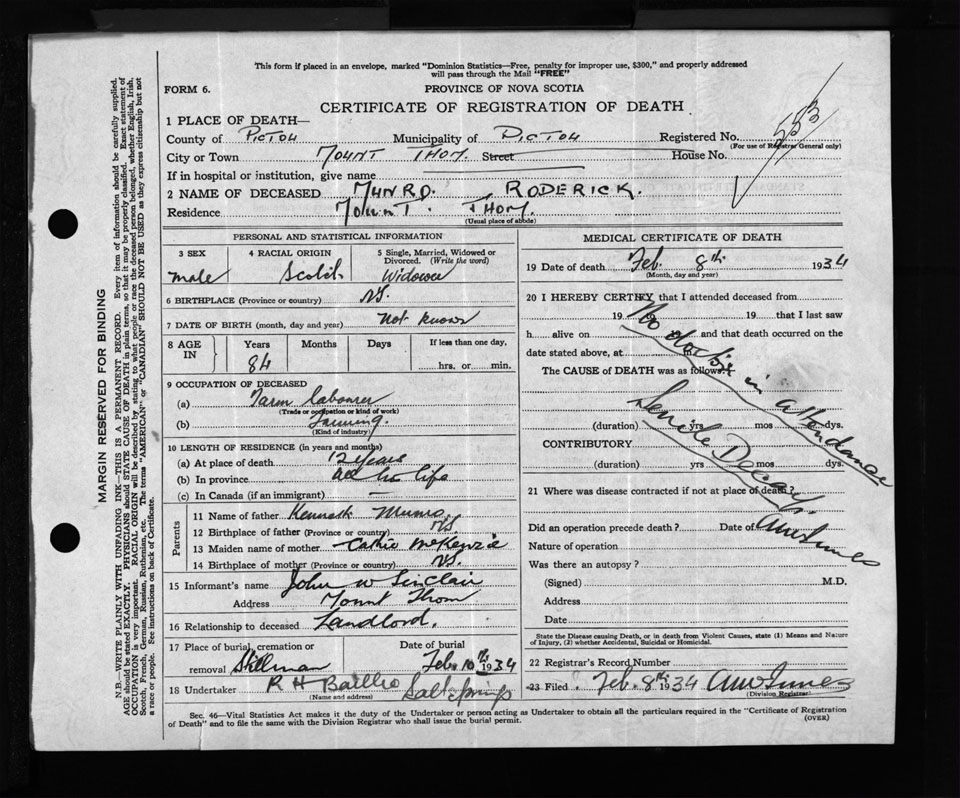 This form if placed in an envelope, marked "Dominion Statistics—Free, penalty for improper use, $300," and properly addressed
will pass through the Mail "FREE"
FORM 6.
PROVINCE OF NOVA SCOTIA
CERTIFICATE OF REGISTRATION OF DEATH
1 PLACE OF DEATH—
County of PICTOU Municipality of PICTOU Registered No. 553
(For use of Registrar General only)
City or Town MOUNT THOM. Street House No.
If in hospital or institution, give name
2 NAME OF DECEASED MUNRO, RODERICK.
Residence MOUNT. THOM.
(Usual place of abode)
PERSONAL AND STATISTICAL INFORMATION
3 SEX 4 RACIAL ORIGIN 5 Single, Married, Widowed or Divorced. (Write the word)
male Scotch Widower
6 BIRTHPLACE (Province or country) N.S.
7 DATE OF BIRTH (month, day and year) Not known
8 AGE IN Years Months Days If less than one day,
84 hrs. or min.
9 OCCUPATION OF DECEASED
(a) Farm Labourer
(Trade or occupation or kind of work)
(b) Farming.
(Kind of industry)
10 LENGTH OF RESIDENCE (in years and months)
(a) At place of death 12 years
(b) In province all his life
(c) In Canada (if an immigrant) —
Parents
11 Name of father Kenneth Munro
12 Birthplace of father (Province or country) N.S.
13 Maiden name of mother McKenzie
14 Birthplace of mother (Province or country) N.S.
15 Informant's name John W Sinclair
Address Mount Thom
16 Relationship to deceased Landlord.
17 Place of burial, cremation or removal Stillman Date of burial Feb 10th 1934
18 Undertaker R H Baillie Salt Springs
(Name and address)
MEDICAL CERTIFICATE OF DEATH
19 Date of death Feb. 8th 1934
(Month, day and year)
20 I HEREBY CERTIFY that I attended deceased from
19 19 that I last saw
h alive on and that death occurred on the
date stated above, at m.
The CAUSE of DEATH was as follows:
No doctor in attendance
Senile Decay.
(duration) yrs mos dys.
CONTRIBUTORY
(duration) yrs mos dys.
21 Where was disease contracted if not at place of death?
Did an operation precede death? Date of
Nature of operation
Was there an autopsy?
(Signed) M.D.
Address
Date
State the Disease causing Death, or in death from Violent Causes, state (1) Means and Nature
of Injury, (2) whether Accidental, Suicidal or Homicidal.
22 Registrar's Record Number
23 Filed Feb. 8th 1934
(Division Registrar)
Sec. 46—Vital Statistics Act makes it the duty of the Undertaker or person acting as Undertaker to obtain all the particulars required in the "Certificate of Registration
of Death" and to file the same with the Division Registrar who shall issue the burial permit. (OVER)
MARGIN RESERVED FOR BINDING
N.B.—WRITE PLAINLY WITH UNFADING INK—THIS IS A PERMANENT RECORD. Every item of information should be carefully supplied.
AGE should be stated EXACTLY. PHYSICIANS should STATE CAUSE OF DEATH in plain terms, so that it may be properly classified. Exact statement of
OCCUPATION is very important. RACIAL ORIGIN will be described by stating to what people or race the deceased person belonged, whether English, Irish,
Scotch, French, German, Russian, Ruthenian, etc. The terms "AMERICAN" or "CANADIAN" SHOULD NOT BE USED as they express citizenship but not
a race or people. See instructions on back of Certificate.